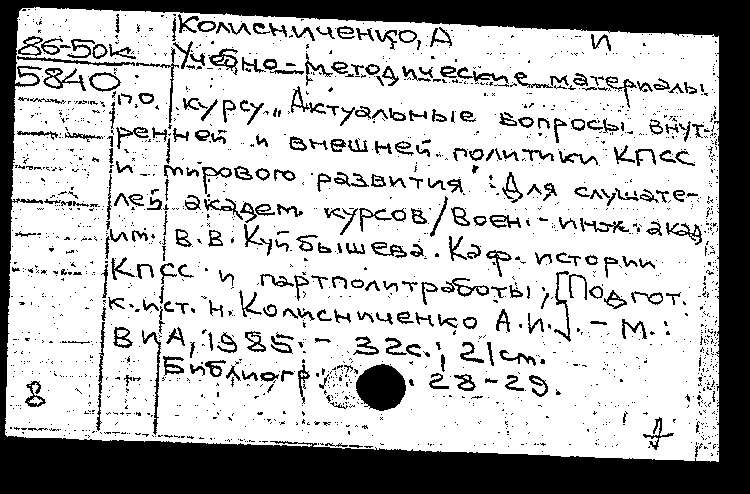 Колисниченко, А И
86-50к
Учебно-методические материалы
5840
по курсу „Актуальные вопросы внут-
ренней и внешней политики КПСС
и мирового развития": Для слушате-
лей академ. курсов/Воен.-инж. акад
им. В.В. Куйбышева. Каф. истории
КПСС и партполитработы; [Подгот.
к.ист.н. Колисниченко А.И.]. - М.:
ВИА, 1985. - 32с.; 21см.
Библиогр: 28-29.
8